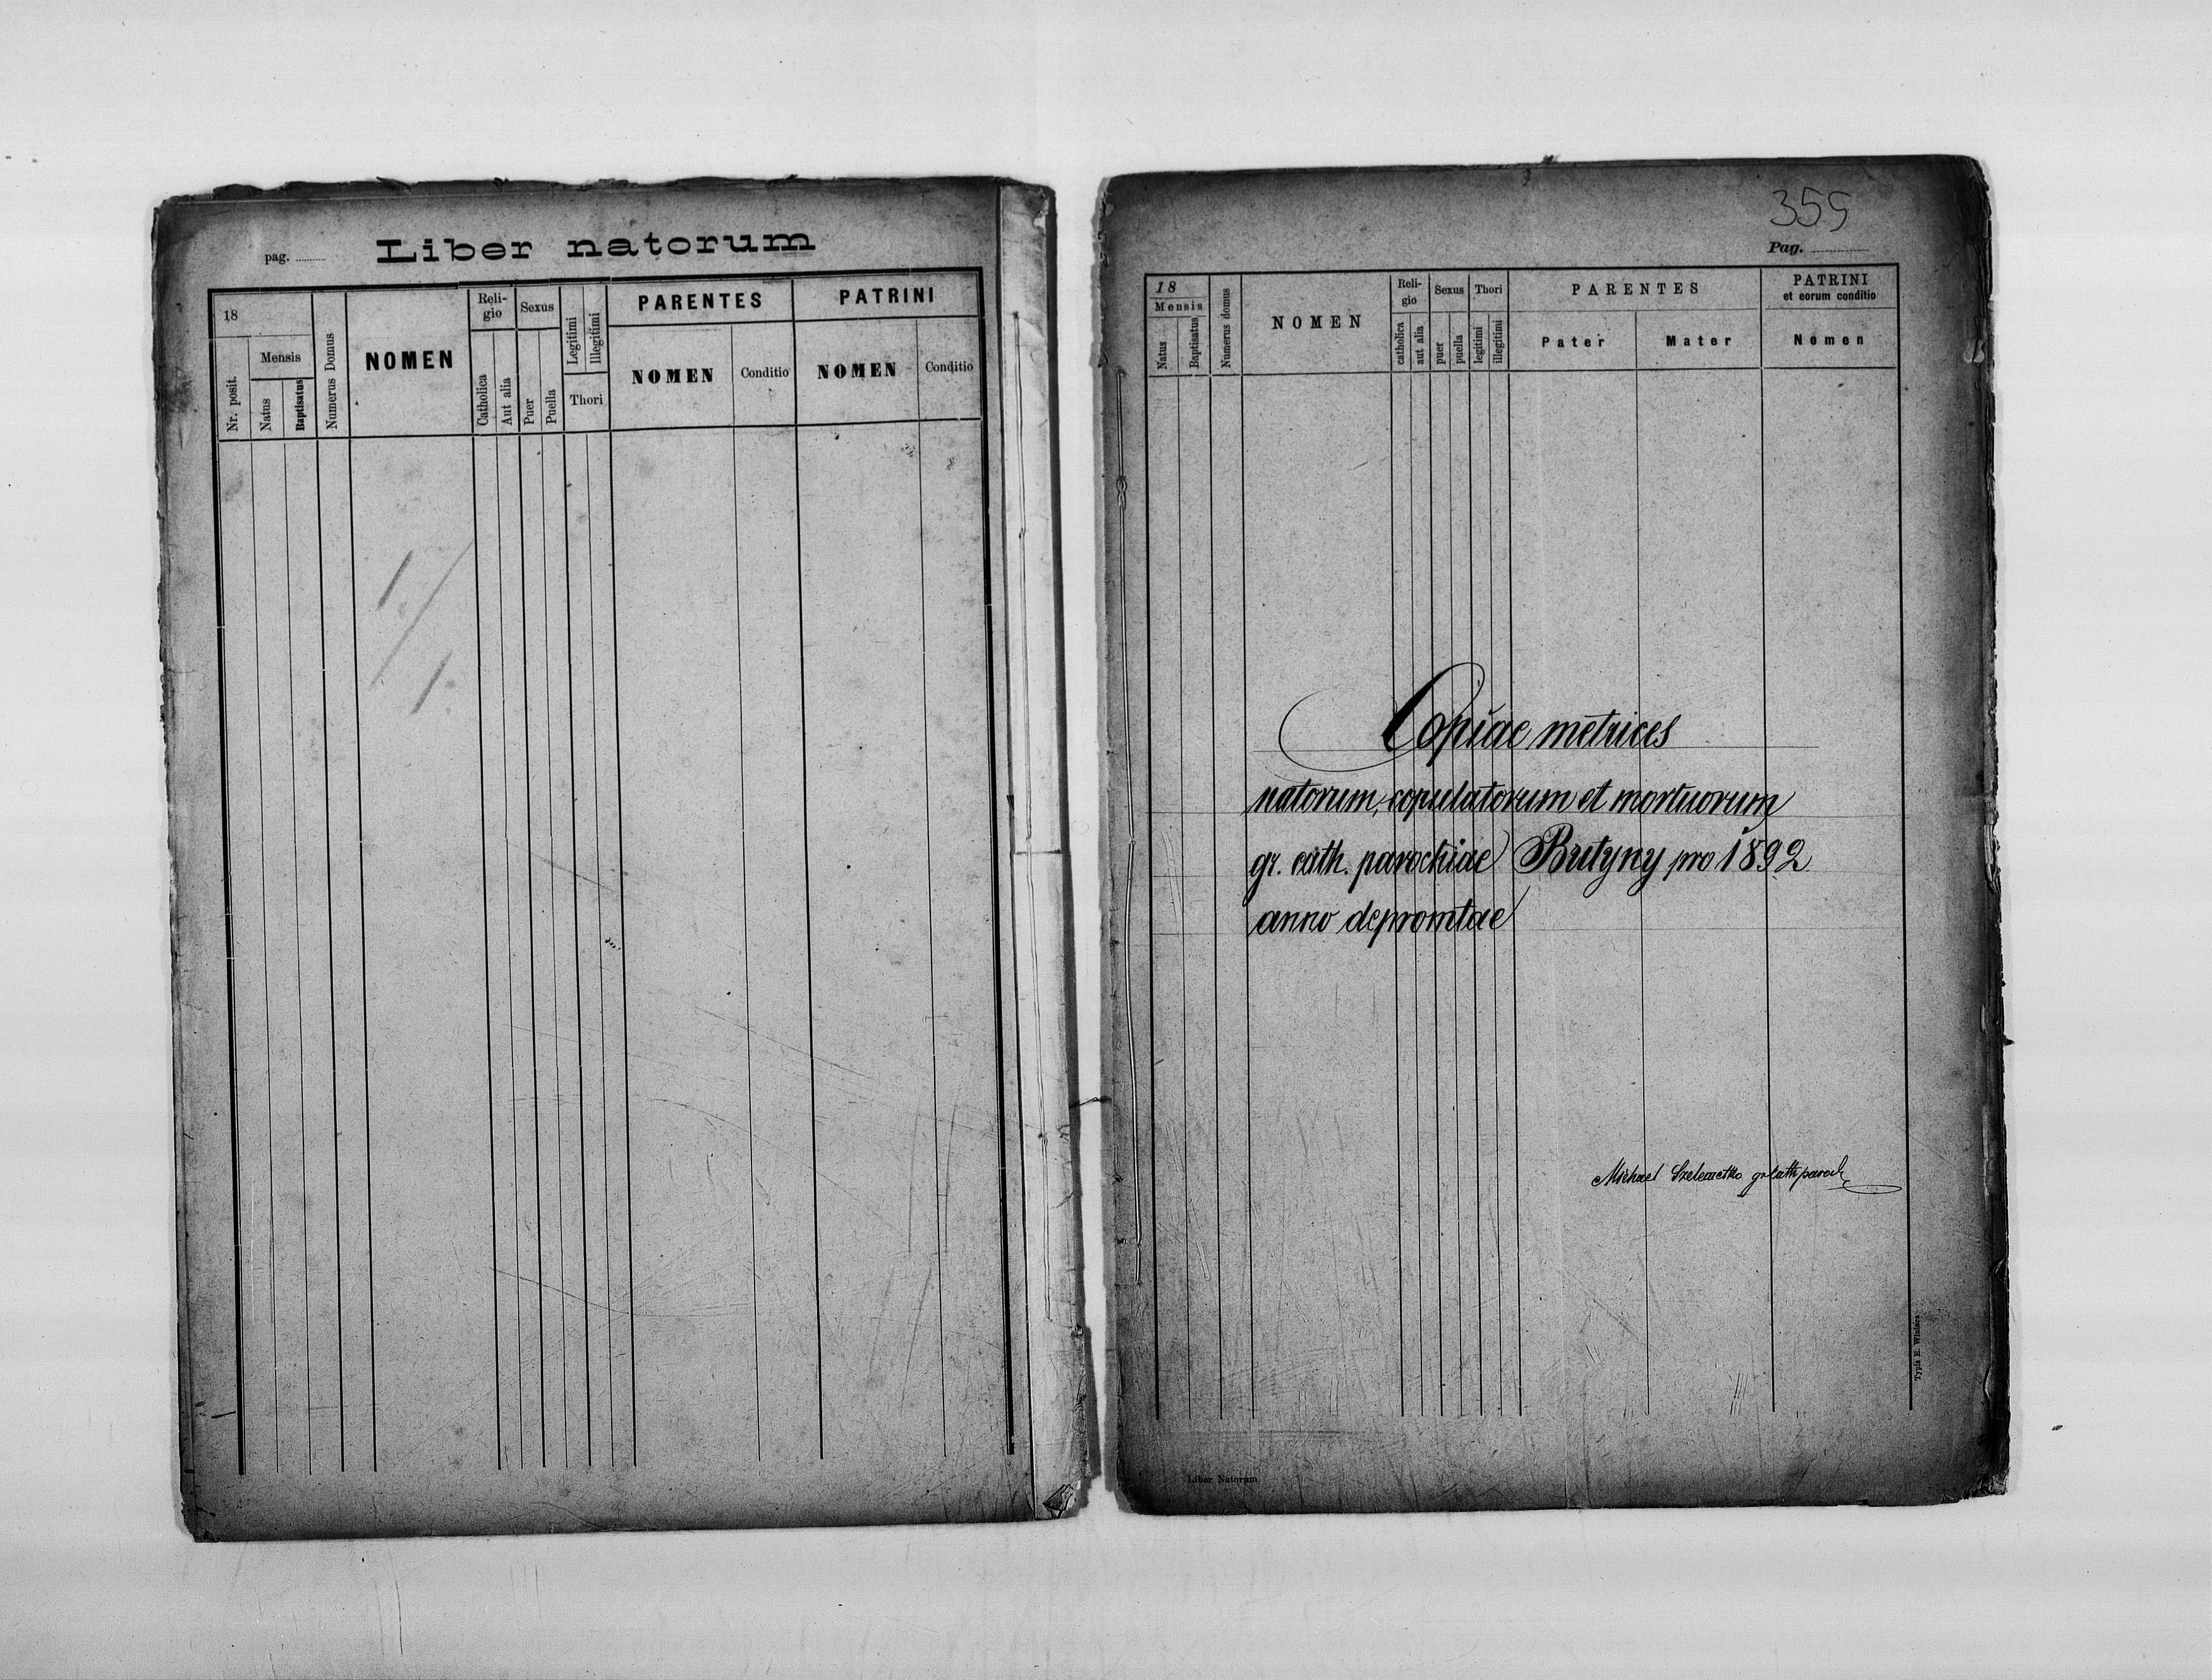 pag.
Liber natorum
18
Nr. posit.
Mensis
Natus
Baptisatus
Numerus Domus
NOMEN
Reli-
gio
Catholica
Aut alia
Sexus
Puer
Puella
Legitimi
Illegitimi
Thori
PARENTES
NOMEN
Conditio
PATRINI
NOMEN
Conditio
355
Pag.
18
Mensis
Natus
Baptisatus
Numerus domus
NOMEN
Reli-
gio
catholica
aut alia
Sexus
puer
puella
Thori
legitimi
illegitimi
PARENTES
Pater
Mater
PATRINI
et eorum conditio
Nomen
Copiae metrices
natorum, copulatorum et mortuorum
gr. cath. parochiae Butyny pro 1892
anno depromtae
Michael gr cath paroch
Liber Natorum